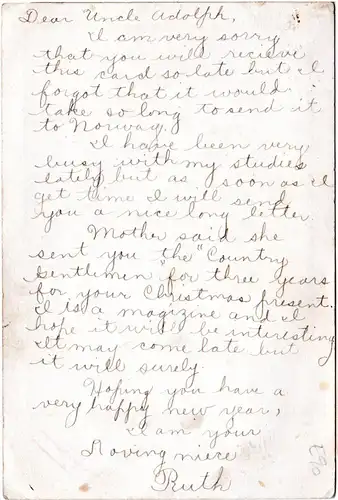 Dear Uncle Adolph,
I am very sorry
that you will recieve
this card so late but I
forgot that it would
take so long to send it
to Norway.
I have been very
busy with my studies
lately but as soon as I
get time I will send
you a nice long letter.
Mother said she
sent you "the "Country
Gentlemen" for three years
for your Christmas present.
I is a magizine and I
hope it will be interesting
It may come late but
it will surely.
Hoping you have a
very happy new year,
I am your
Loving niece
Ruth